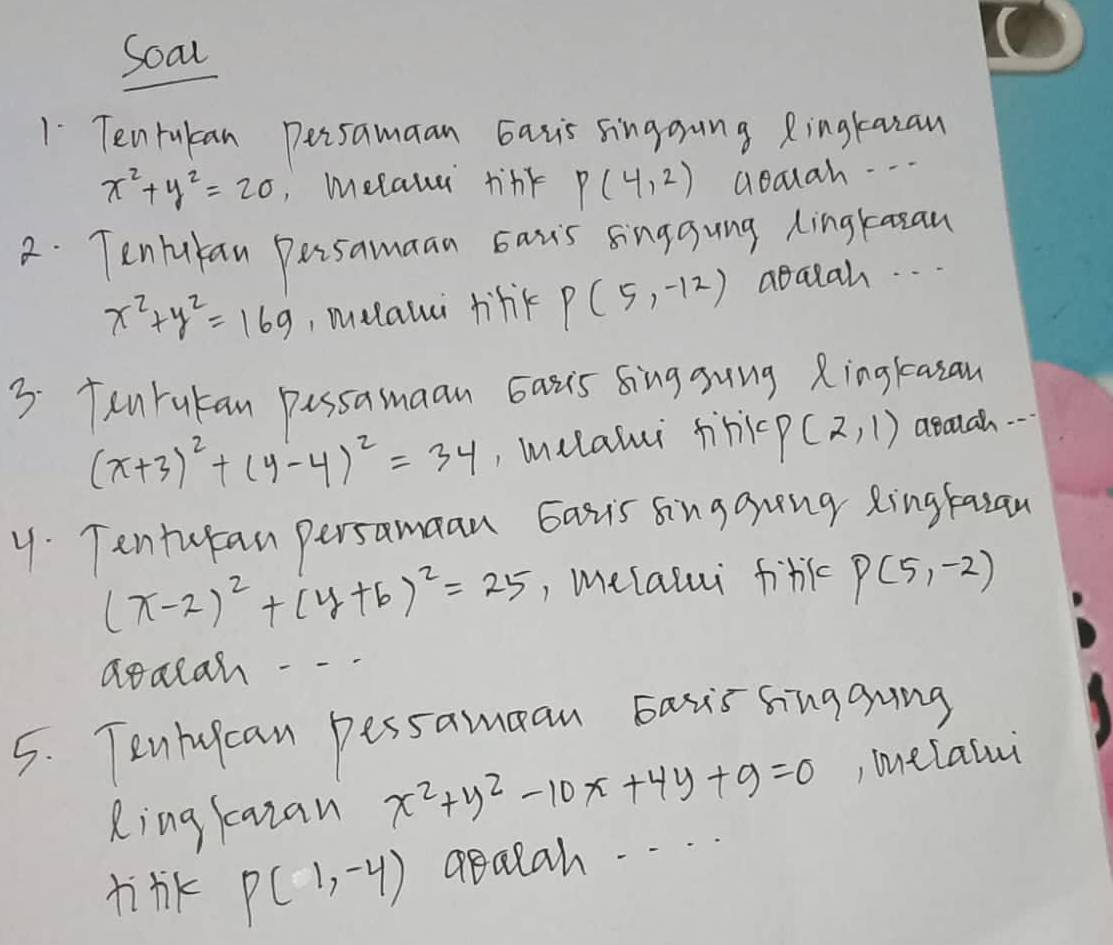 Soal
1. Tentukan persamaan garis singgung lingkaran
x² + y² = 20, melalui titik P(4,2) adalah ...
2. Tentukan persamaan garis singgung lingkaran
x² + y² = 169, melalui titik P(5,-12) adalah ...
3. Tentukan persamaan garis singgung lingkaran
(x+3)² + (y-4)² = 34, melalui titik P(2,1) adalah ...
4. Tentukan persamaan garis singgung lingkaran
(x-2)² + (y+6)² = 25, melalui titik P(5,-2)
adalah ...
5. Tentukan persamaan garis singgung
lingkaran x² + y² - 10x + 4y + 9 = 0, melalui
titik P(1,-4) adalah ....